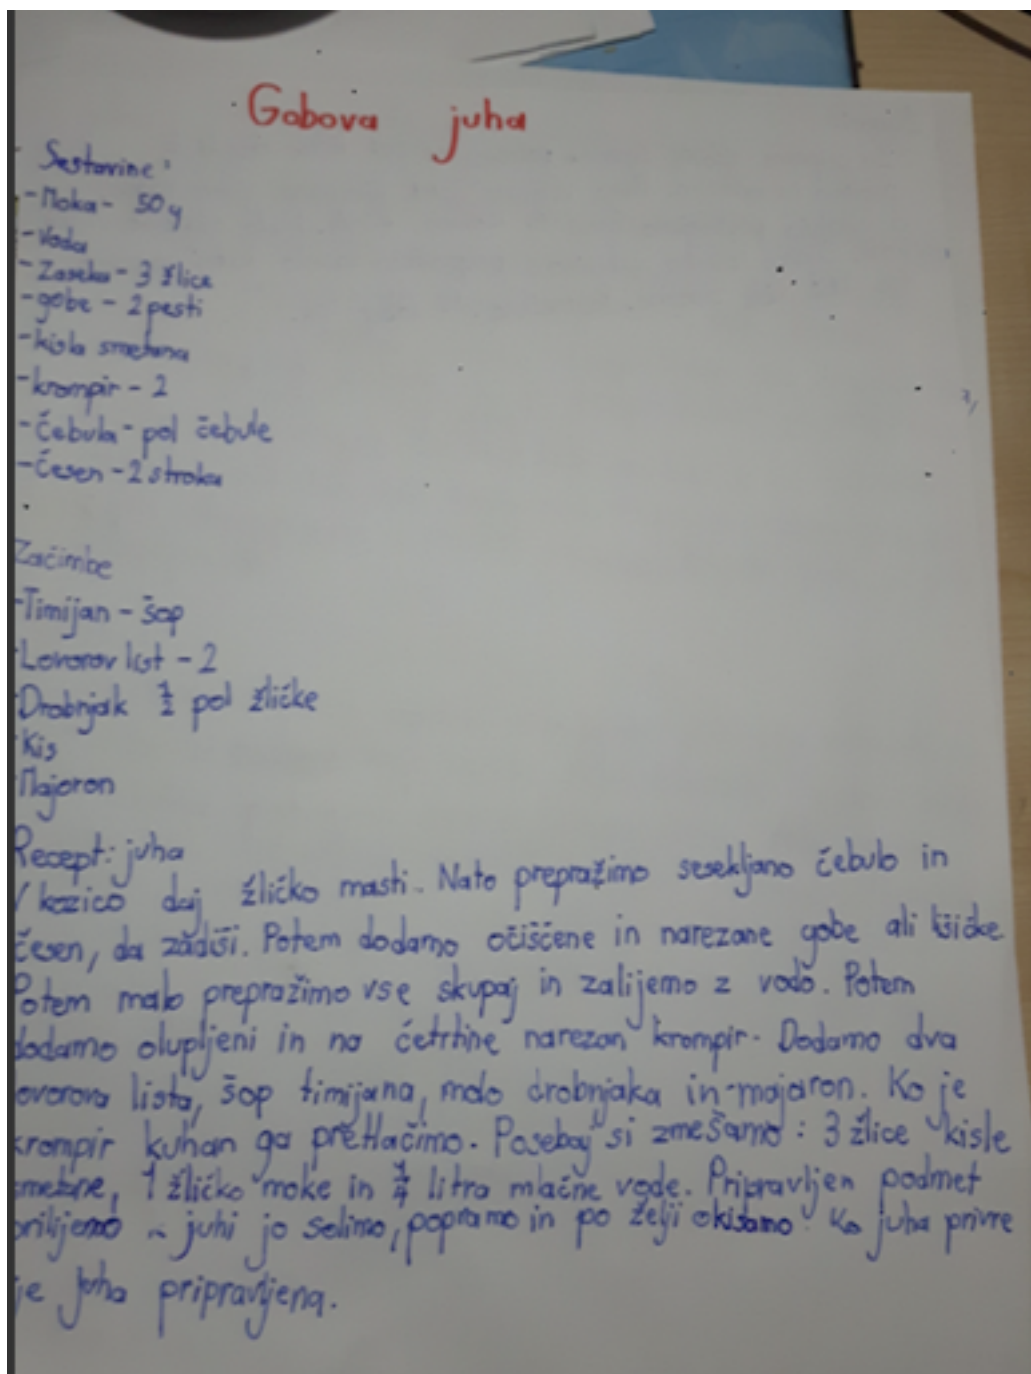 Gobova juha
Sestavine:
-Moka- 50g
-Voda
-Zaseka- 3 žlice
-gobe - 2 pesti
-kisla smetana
-krompir - 2
-Čebula- pol čebule
-Česen -2 stroka
Začimbe
-Timijan - šop
Lovorov list - 2
Drobnjak ½ pol žličke
Kis
Majoron
Recept: juha
V kozico daj žličko masti. Nato prepražimo sesekljano čebulo in
česen, da zadiši. Potem dodamo očiščene in narezane gobe ali
Potem malo prepražimo vse skupaj in zalijemo z vodo. Potem
dodamo olupljeni in na četrtine narezan krompir. Dodamo dva
lovorova lista, šop timijana, malo drobnjaka in majaron. Ko je
krompir kuhan ga pretlačimo. Posebaj si zmešamo: 3 žlice kisle
smetane, 1 žličko moke in ¼ litra mlačne vode. Pripravljen podmet
prilijemo juhi jo solimo, popramo in po želji okisamo. Ko juha privre
je juha pripravljena.